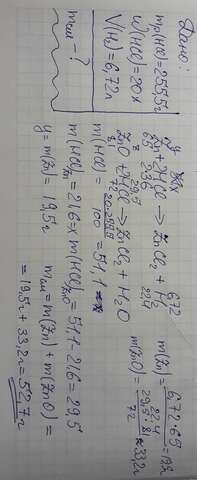 Дано:
mр(HCl) = 255,5г
ω(HCl) = 20%
V(H₂) = 6,72л
mсм - ?
Zn + 2HCl → ZnCl₂ + H₂
65 2·36 22,4
6,72
ZnO + 2HCl → ZnCl₂ + H₂O
81 72
29,5
m(HCl) = 20·255,5 / 100 = 51,1
m(HCl)Zn = 21,6 m(HCl)ZnO = 51,1 - 21,6 = 29,5
y = m(Zn) = 19,5г
m(Zn) = 6,72·65 / 22,4
m(ZnO) = 29,5·81 / 72 = 33,2г
mсм = m(Zn) + m(ZnO) =
= 19,5г + 33,2г = 52,7г